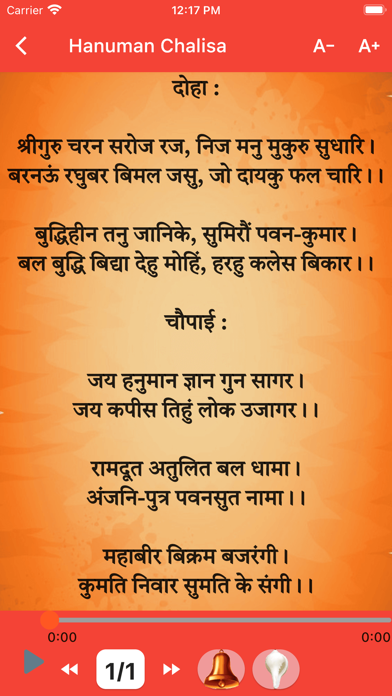 Carrier 12:17 PM
Hanuman Chalisa A- A+
दोहा :
श्रीगुरु चरन सरोज रज, निज मनु मुकुरु सुधारि।
बरनऊं रघुबर बिमल जसु, जो दायकु फल चारि।।
बुद्धिहीन तनु जानिके, सुमिरौं पवन-कुमार।
बल बुद्धि बिद्या देहु मोहिं, हरहु कलेस बिकार।।
चौपाई :
जय हनुमान ज्ञान गुन सागर।
जय कपीस तिहुं लोक उजागर।।
रामदूत अतुलित बल धामा।
अंजनि-पुत्र पवनसुत नामा।।
महाबीर बिक्रम बजरंगी।
कुमति निवार सुमति के संगी।।
0:00 0:00
1/1